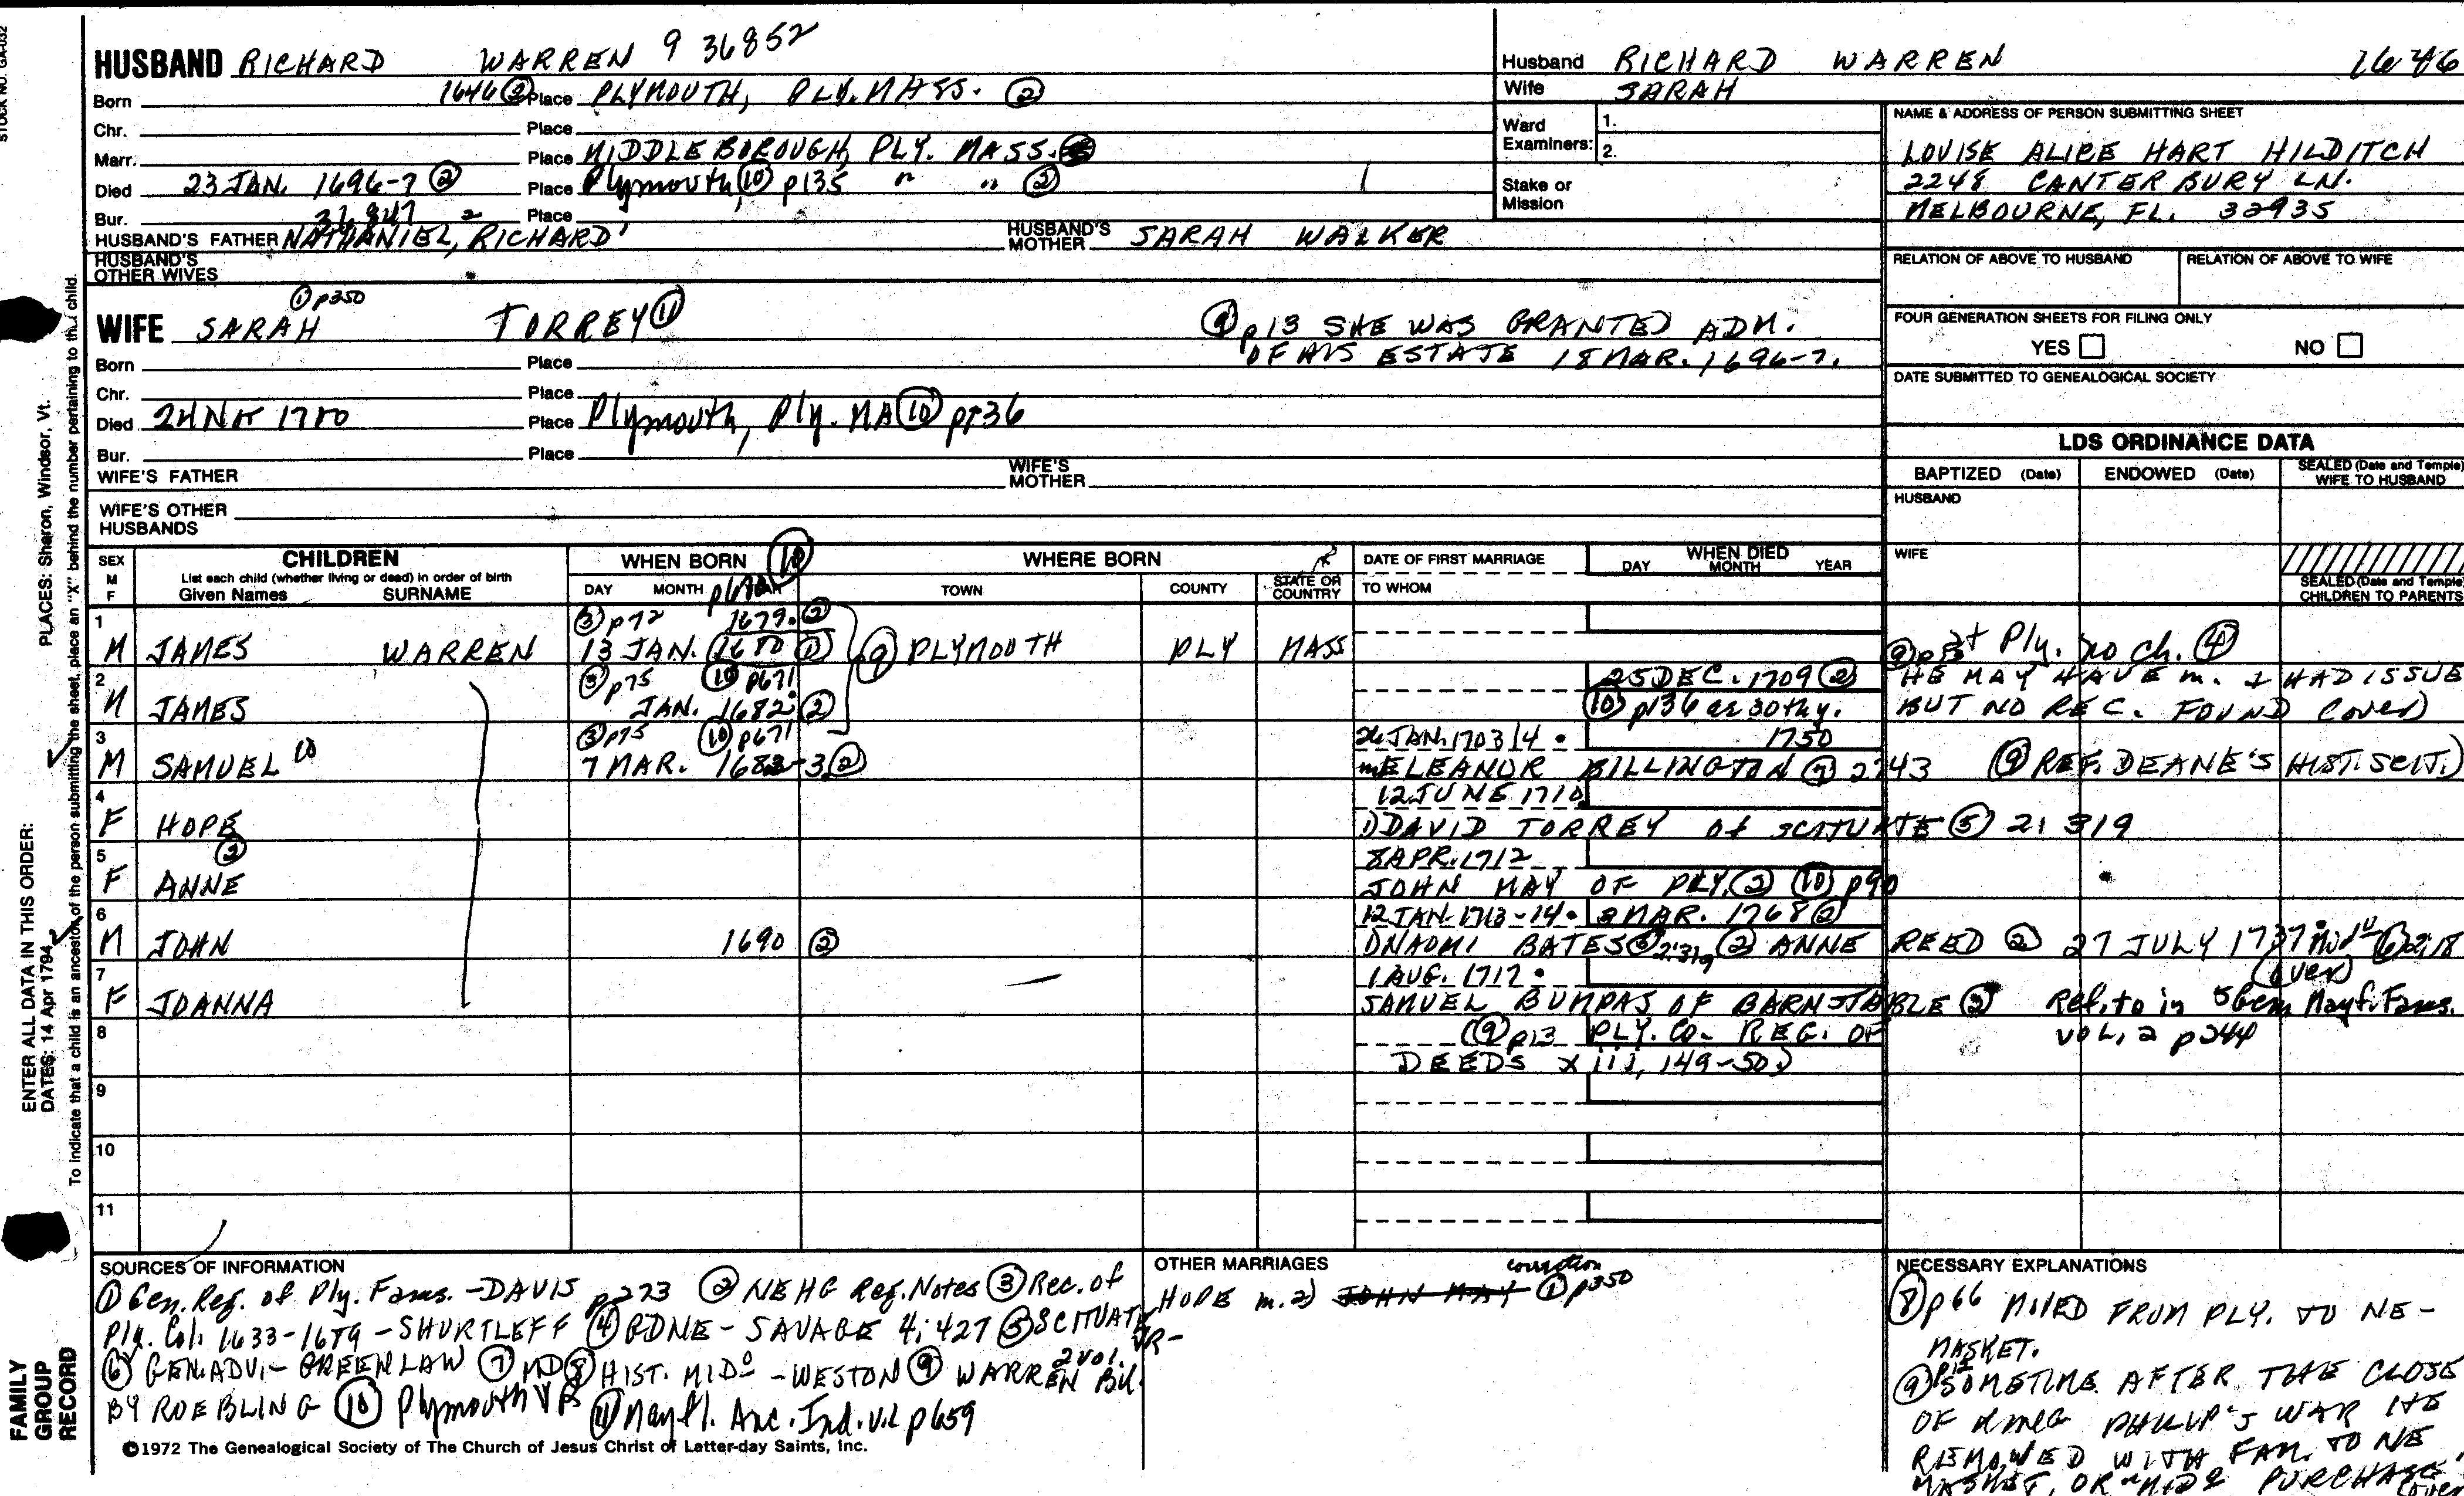 STOCK NO. GA-032
HUSBAND RICHARD WARREN 9 36852
Born 1646 ③ Place PLYMOUTH, PLY. MASS. ②
Chr. Place
Marr. Place MIDDLEBOROUGH, PLY. MASS.
Died 23 JAN. 1696-7 ② Place Plymouth, ⑩ p135 " " ②
Bur. Place
HUSBAND'S FATHER NATHANIEL, RICHARD HUSBAND'S MOTHER SARAH WALKER
HUSBAND'S OTHER WIVES
① p350
WIFE SARAH TORREY ⑪ ⑨ p13 SHE WAS GRANTED ADM.
OF HIS ESTATE 18 MAR. 1696-7.
Born Place
Chr. Place
Died Place Plymouth, Ply. MA ⑩
Bur. Place
WIFE'S FATHER WIFE'S MOTHER
WIFE'S OTHER HUSBANDS
Husband RICHARD WARREN 1646
Wife SARAH
Ward Examiners: 1.
2.
Stake or Mission
NAME & ADDRESS OF PERSON SUBMITTING SHEET
LOUISE ALICE HART HILDITCH
2248 CANTERBURY LN.
MELBOURNE, FL. 32935
RELATION OF ABOVE TO HUSBAND RELATION OF ABOVE TO WIFE
FOUR GENERATION SHEETS FOR FILING ONLY
YES NO
DATE SUBMITTED TO GENEALOGICAL SOCIETY
LDS ORDINANCE DATA
BAPTIZED (Date) ENDOWED (Date) SEALED (Date and Temple) WIFE TO HUSBAND
HUSBAND
WIFE
SEALED (Date and Temple) CHILDREN TO PARENTS
SEX M F CHILDREN WHEN BORN ⑩ WHERE BORN DATE OF FIRST MARRIAGE WHEN DIED
List each child (whether living or dead) in order of birth
Given Names SURNAME DAY MONTH TOWN COUNTY STATE OR COUNTRY TO WHOM DAY MONTH YEAR
1 ③ p72 1679. ②
M JAMES WARREN 13 JAN. 1680 ① ⑨ PLYMOUTH PLY MASS Ply. no ch. ④
2 ③ p75 ⑩ p671 25 DEC. 1709 ② HE MAY HAVE m. & HAD ISSUE
M JAMES JAN. 1682 ② ⑩ p136 as 30th y. BUT NO REC. FOUND (over)
3 ③ p75 ⑩ p671 26 JAN. 1703/4 1750
M SAMUEL 10 7 MAR. 1682-3 ② m ELEANOR BILLINGTON ⑨ 2743 ⑨ REF. DEANE'S HIST. SCIT.)
4 12 JUNE 1710
F HOPE 1) DAVID TORREY of SCITUATE ⑤ 2: 319
5 ② 8 APR. 1712
F ANNE JOHN MAY OF PLY. ② ⑩ p90
6 12 JAN. 1713-14 3 MAR. 1768 ②
M JOHN 1690 ② 1) NAOMI BATES ⑤ 2:319 ② ANNE REED ② 27 JULY 1737
(over)
7 1 AUG. 1717
F JOANNA SAMUEL BUMPAS OF BARNSTABLE ② Ref. to in 5 Gen Mayf. Fams.
vol. 2 p 344
8 (⑨ p13 PLY. CO. REG. OF
DEEDS xiii, 149-50)
9
10
11
SOURCES OF INFORMATION
① Gen. Reg. of Ply. Fams. - DAVIS p273 ② NEHG Reg. Notes ③ Rec. of
Ply. Col. 1633-1689 - SHURTLEFF ④ GDNE - SAVAGE 4: 427 ⑤ SCITUATE VR-
⑥ GEN. ADV. - GREENLAW ⑦ MD ⑧ HIST. MIDo - WESTON ⑨ WARREN 2 vol.
BY ROEBLING ⑩ Plymouth VRs ⑪ Mayfl. Anc. Ind. v.1 p659
©1972 The Genealogical Society of The Church of Jesus Christ of Latter-day Saints, Inc.
OTHER MARRIAGES
correction
HOPE m. 2) JOHN MAY ① p350
NECESSARY EXPLANATIONS
⑧ p66 MOVED FROM PLY. TO NE-
MASKET.
⑨ p12 SOMETIME AFTER THE CLOSE
OF KING PHILIP'S WAR HE
REMOVED WITH FAM. TO NE
MASKET, OR PURCHASE
(over
ENTER ALL DATA IN THIS ORDER:
DATES: 14 Apr 1794 PLACES: Sharon, Windsor, Vt.
To indicate that a child is an ancestor of the person submitting the sheet, place an "X" behind the number pertaining to that child.
FAMILY
GROUP
RECORD